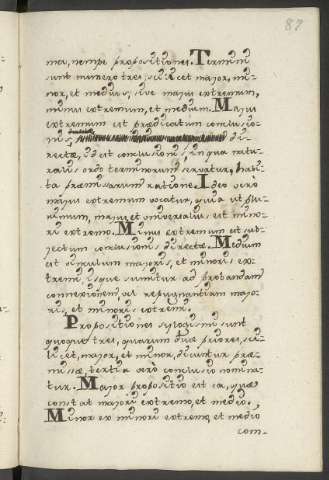 87
mei, nempe propositiones. Termini
sunt numero tres, scilicet major, mi-
nor, et medius, sive majus extremum,
minus extremum, et medium. Majus
extremum est prædicatum conclusio-
nis di-
rectæ, id est conclusionis, in qua natu-
ralis ordo terminorum servatur, habi-
ta præmissarum ratione. Ideo vero
majus extremum vocatur, quia ut plu-
rimum, majus et universalius est mino-
ri extremo. Minus extremum est sub-
jectum conclusionis directæ. Medium
est vinculum majoris, et minoris ex-
tremi, ique sumitur ad probandam
connexionem, vel repugnantiam majo-
ris, et minoris extremi.
Propositiones sylogismi sunt
quoque tres, quarum duæ priores, sci-
licet, major, et minor, dicuntur præ-
missæ, tertia vero conclusio nomina-
tur. Major propositio est ea, quæ
constat majori extremo, et medio.
Minor ex minori extremo, et medio
com-